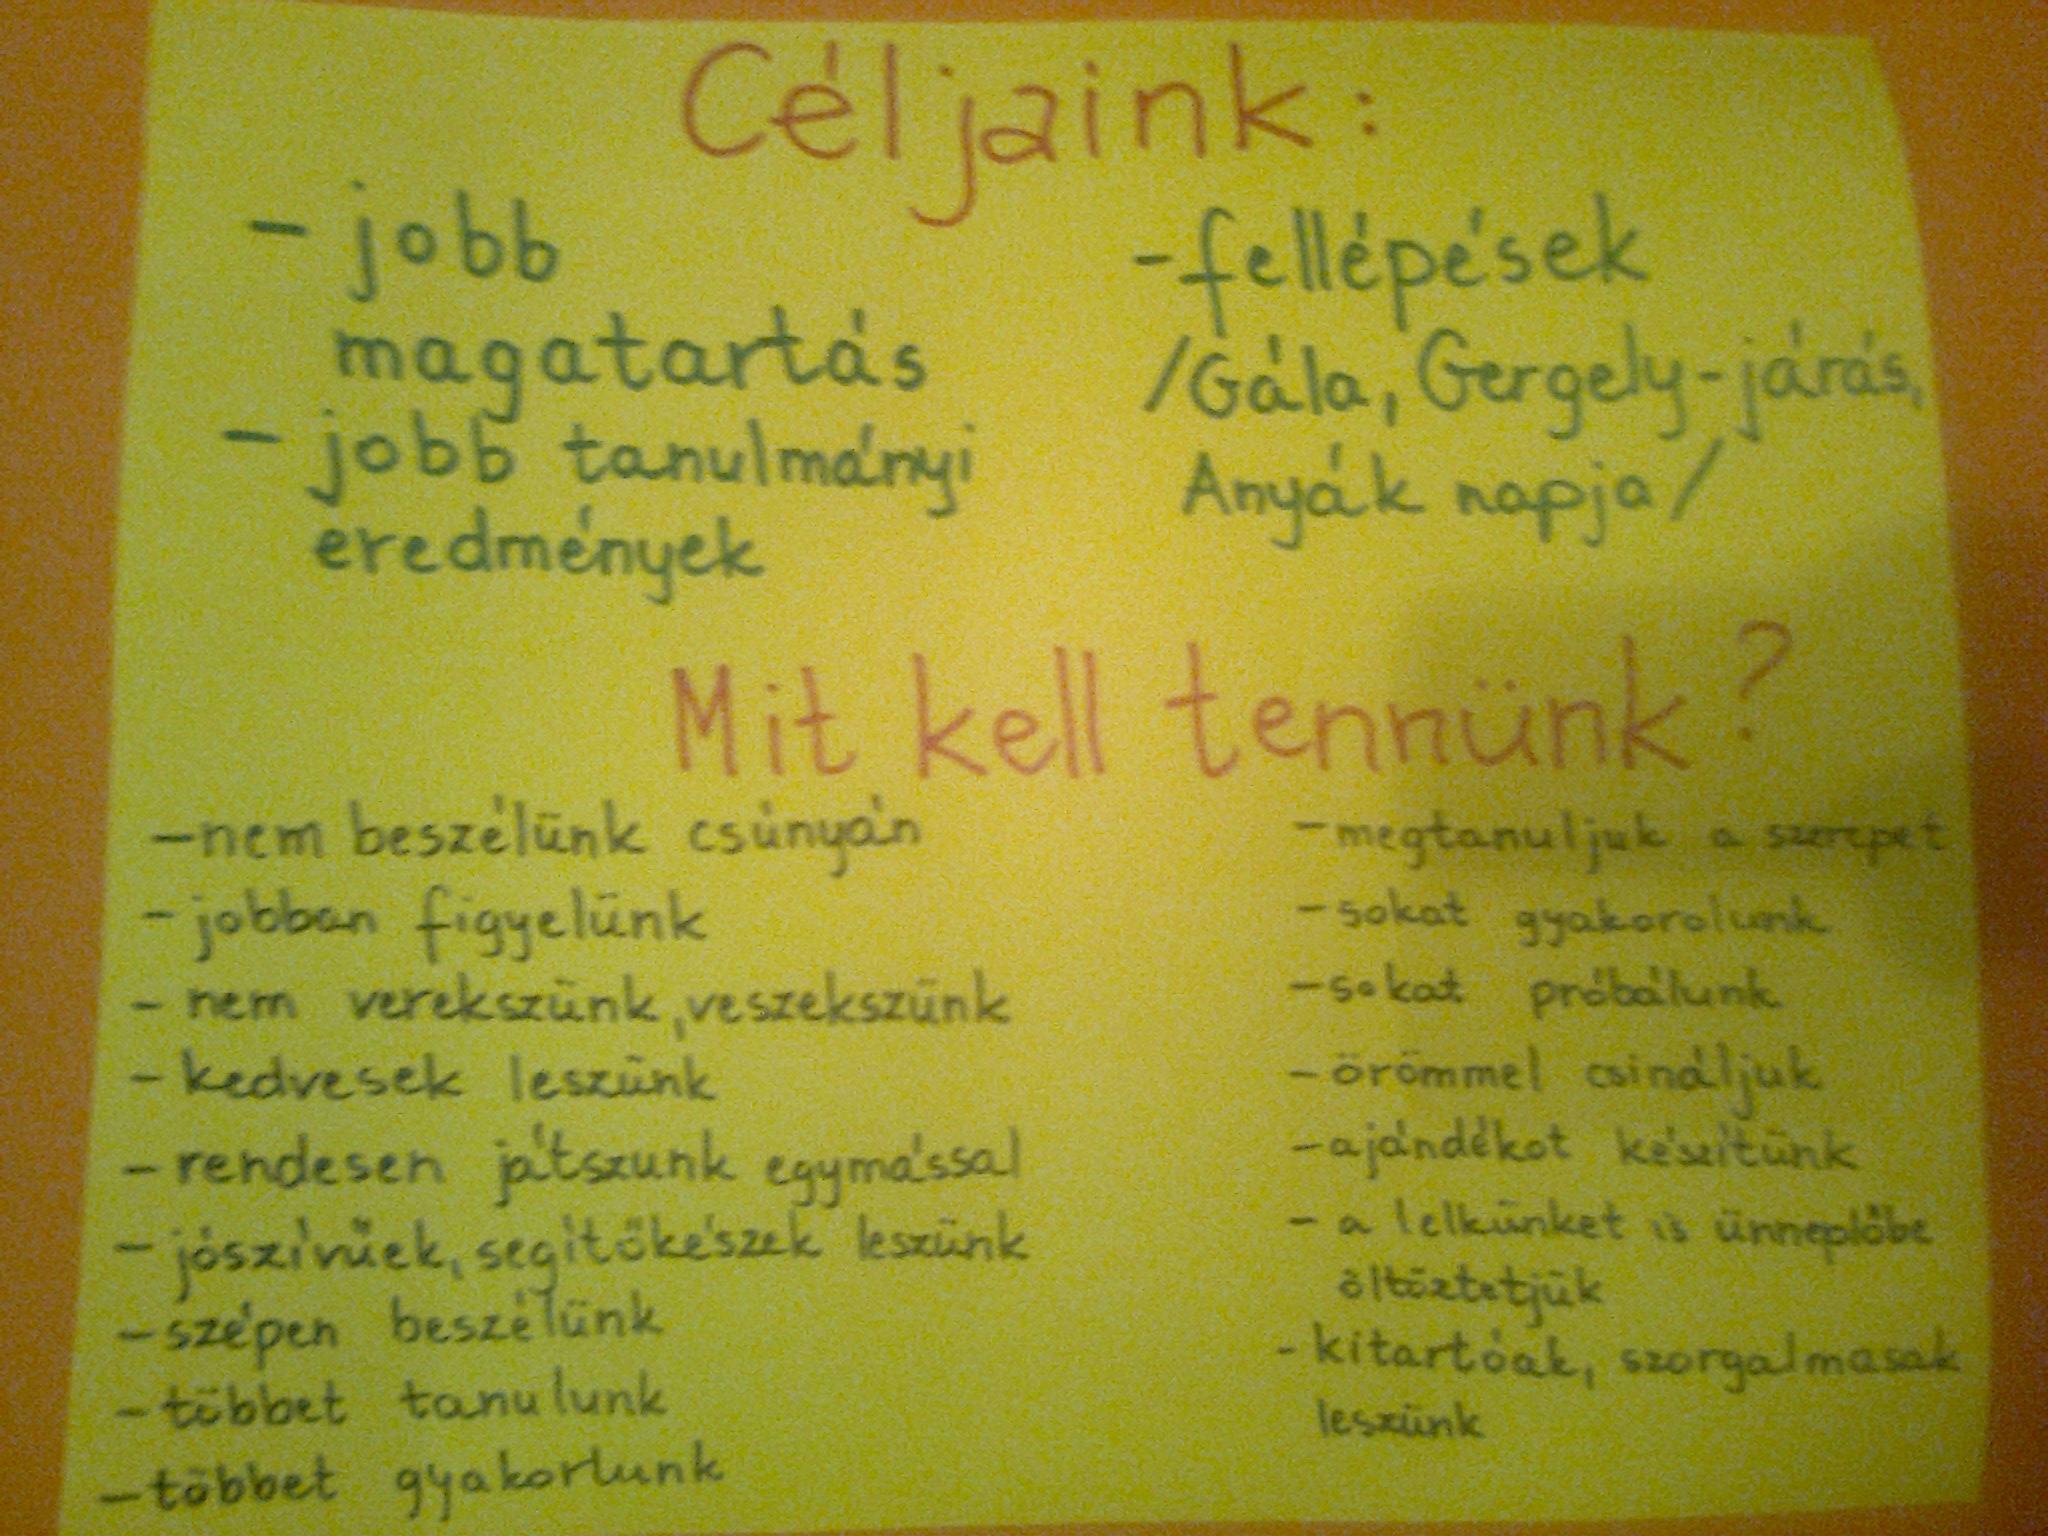 Céljaink:
- jobb
magatartás
- jobb tanulmányi
eredmények
- fellépések
/Gála, Gergely-járás,
Anyák napja/
Mit kell tennünk?
- nem beszélünk csúnyán
- jobban figyelünk
- nem verekszünk, veszekszünk
- kedvesek leszünk
- rendesen játszunk egymással
- jószívűek, segítőkészek leszünk
- szépen beszélünk
- többet tanulunk
- többet gyakorlunk
- megtanuljuk a szerepet
- sokat gyakorolunk
- sokat próbálunk
- örömmel csináljuk
- ajándékot készítünk
- a lelkünket is ünneplőbe
öltöztetjük
- kitartóak, szorgalmasak
leszünk